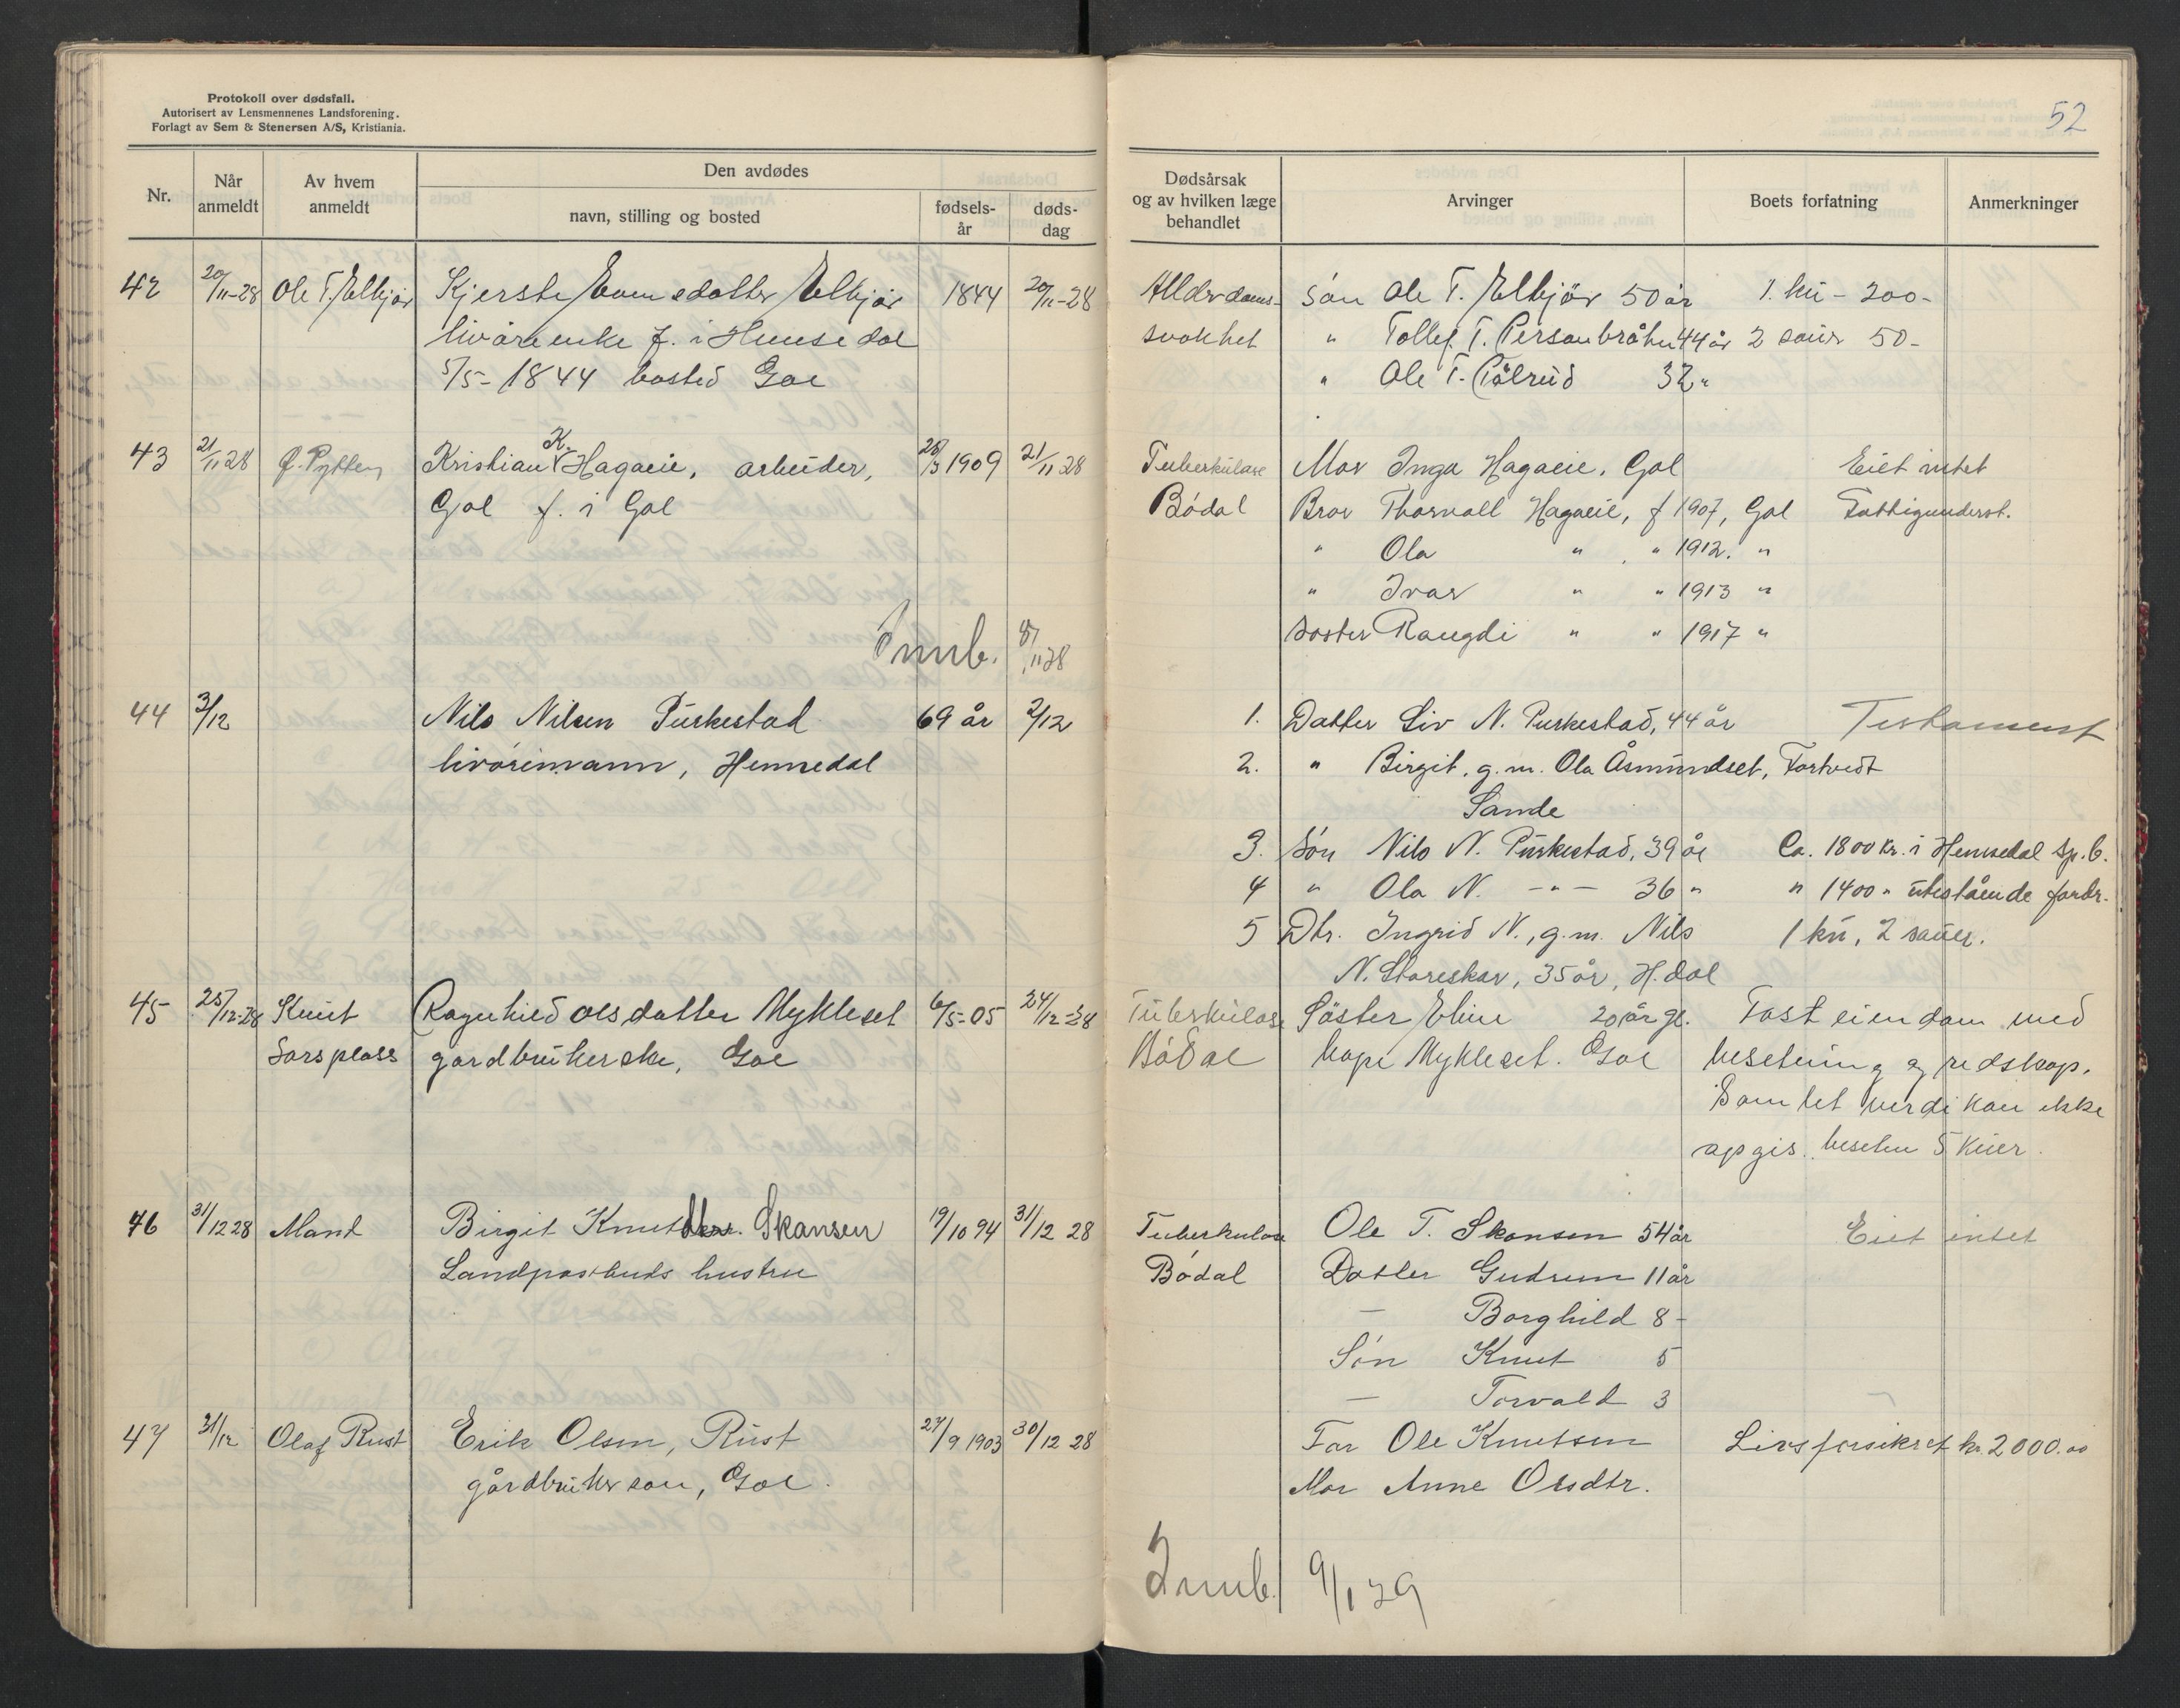 Protokoll over dødsfall.
Autorisert av Lensmennenes Landsforening.
Forlagt av Sem & Stenersen A/S, Kristiania.
52
Nr.
Når anmeldt
Av hvem anmeldt
Den avdødes
navn, stilling og bosted
fødsels-år
døds-dag
Dødsårsak og av hvilken læge behandlet
Arvinger
Boets forfatning
Anmerkninger
42 20/11-28 Ole T. Elbjör Kjersti Evensdatter Elbjör 1844 20/11-28 Allderdoms- Sön Ole T. Elbjör 50 år 1. ku - 200-
livöreenke f. i Hemsedal svakhet " Tollef T. Personbråten 44 år 2 sauer 50-
5/5-1844 bosted Gol " Ole T. Pålrud 32 "
43 21/11 28 Kristian K. Hagaeie, arbeider, 28/3 1909 21/11 28 Tuberkulose Mor Inga Hagaeie, Gol Eiet intet
Gol f. i Gol Bödal Bror Thorvall Hagaeie, f 1907, Gol Fattigunderst.
" Ola " " 1912. "
" Ivar " " 1913 "
Søster Rangdi " " 1917 "
Innb. 8/11 28
44 3/12 Nils Nilsen Purkestad 69 år 2/12 1. Datter Liv N. Purkestad, 44 år Testament
livörimann, Hemsedal 2. " Birgit, g.m. Ola Åsmundset, Tortvedt
Sande
3. Sön Nils N. Purkestad, 39 år Ca. 1800 kr. i Hemsedal Sp.b.
4 " Ola N. -"- 36 " " 1400 " utestående fordr.
5 Dtr. Ingrid N., g.m. Nils 1 ku, 2 sauer.
N. Storeskar, 35 år, H.dal
45 25/12-28 Knut Ragnhild Olsdatter Mykleset 6/5-05 24/12-28 Tuberkulose Söster Eline 20 år gl. Fast eiendom med
Sorsplass gardbrukerske, Gol Bödal Mykleset. Gol besetning og redskap.
Samlet verdi kan ikke
opgis. 5 kuer.
46 31/12 28 Mand Birgit Knutsdtr. Skansen 19/10 94 31/12 28 Tuberkulose Ole T. Skansen 54 år Eiet intet
Landpostbuds hustru Bödal Datter Gudrun 11 år
— Borghild 8 -
Sön Knut 5
— Torvald 3
47 31/12 Olaf Rust Erik Olsen, Rust 27/9 1903 30/12 28 Far Ole Knutsen Livsforsikret kr. 2000.00
gårdbruker sön, Gol. Mor Anne Olsdtr.
Innb. 9/1 29